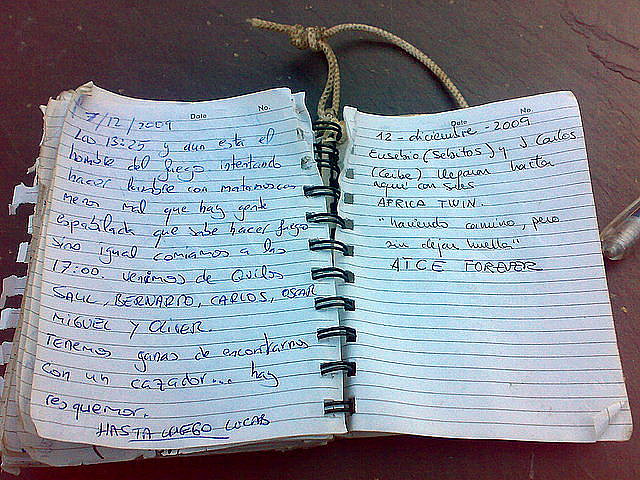 7/12/2009
Date
No.
Las 13:25 y aun esta el
hombre del fuego intentando
hacer lumbre con matamoscas
menos mal que hay gente
espabilada que sabe hacer fuego
sino igual comiamos a las
17:00. venimos de Quilos
SAUL, BERNARDO, CARLOS, OSCAR
MIGUEL Y OLIVER.
TENEMOS ganas de encontrarnos
con un cazador... hay
resquemor.
HASTA LUEGO LUCAS
Date
No.
12 - diciembre - 2009
Eusebio (Sebitos) y J Carlos
(Caribe) llegaron hasta
aqui con sus
AFRICA TWIN.
"haciendo camino, pero
sin dejar huella"
ATCE FOREVER